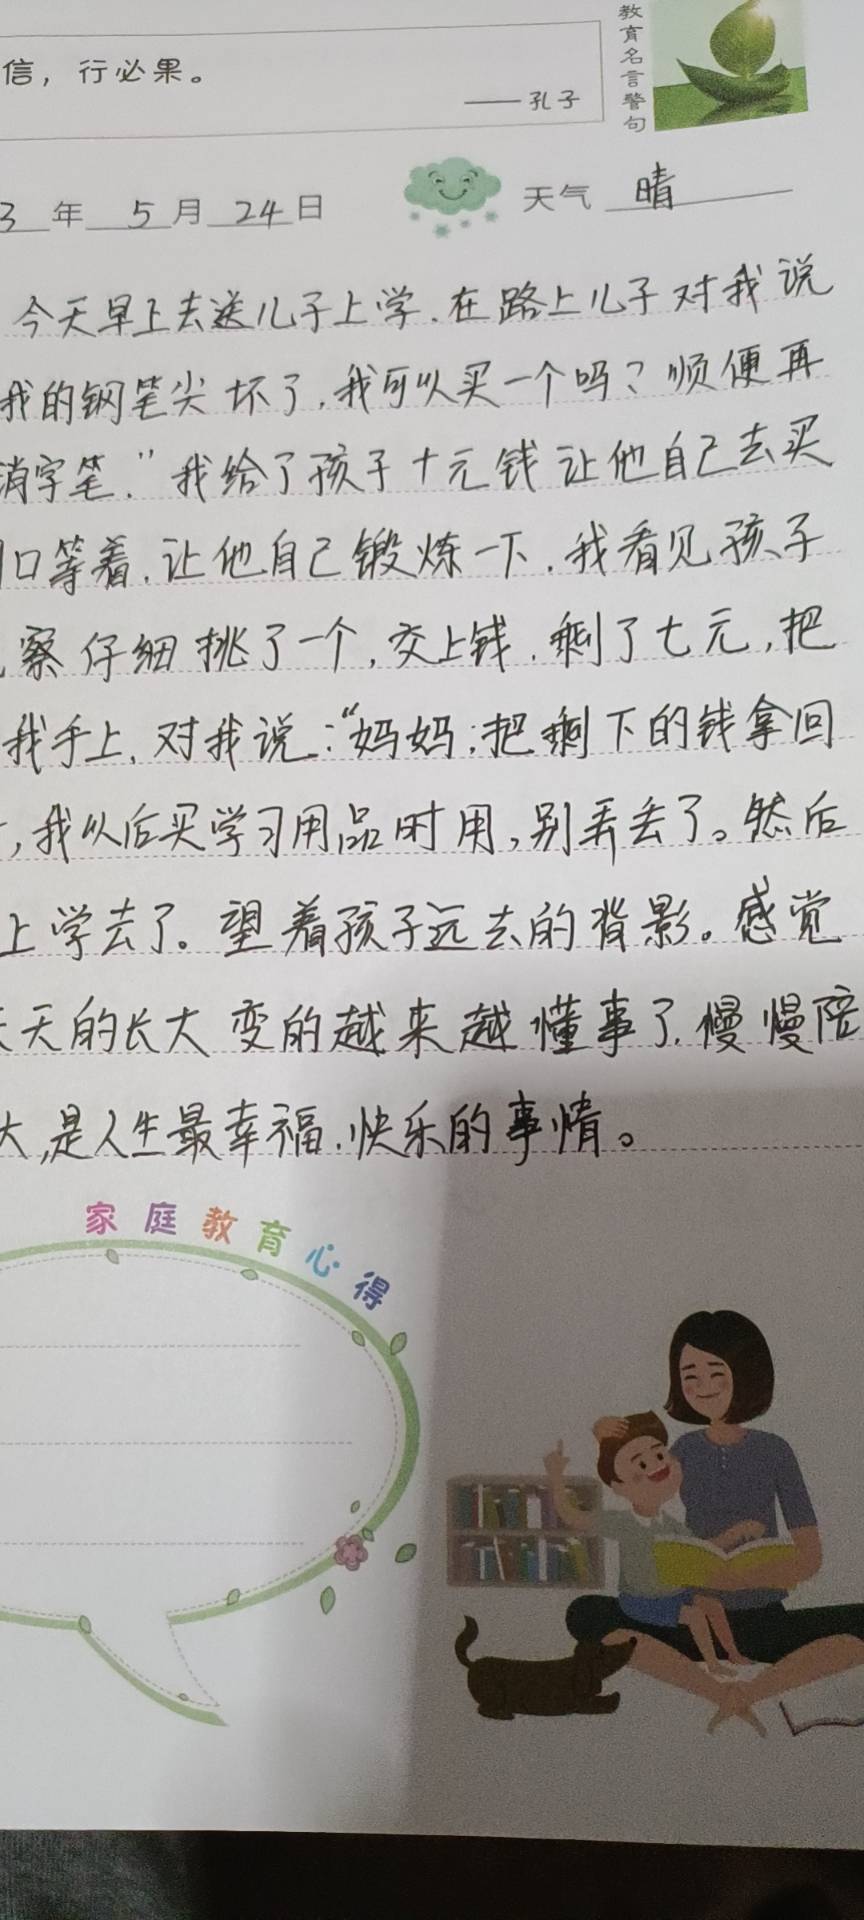 信，行必果。
——孔子
教育名言警句
3年5月24日 天气 晴
今天早上去送儿子上学.在路上儿子对我说
我的钢笔尖坏了,我可以买一个吗?顺便再
消字笔."我给了孩子十元钱让他自己去买
口等着.让他自己锻炼一下.我看见孩子
察仔细挑了一个,交上钱.剩了七元,把
我手上.对我说:"妈妈:把剩下的钱拿回
,我以后买学习用品时用,别弄丢了。然后
上学去了。望着孩子远去的背影。感觉
天天的长大变的越来越懂事了.慢慢陪
大,是人生最幸福.快乐的事情。
家庭教育心得